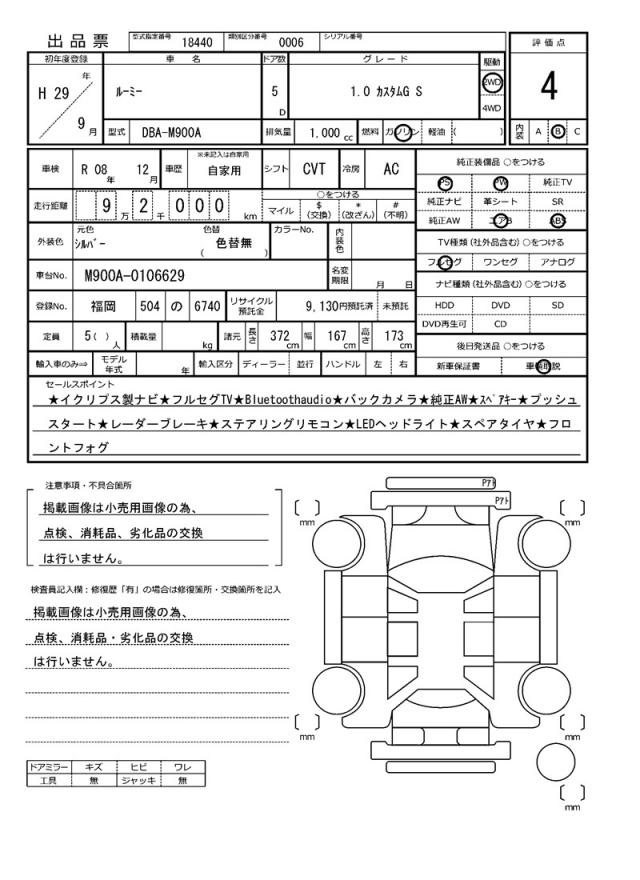 出品票 型式指定番号 18440 類別区分番号 0006 シリアル番号
評価点
4
初年度登録 車名 ドア数 グレード 駆動
H 29 年 9 月 ルーミー 5 D 1.0 ｶｽﾀﾑG S 2WD 4WD
型式 DBA-M900A 排気量 1,000 cc 燃料 ガソリン 軽油 ( ) 内装 A B C
車検 R 08 年 12 月 車歴 ※未記入は自家用 自家用 シフト CVT 冷房 AC
走行距離 9 万 2 千 0 0 0 km ○をつける マイル $ (交換) * (改ざん) # (不明)
外装色 元色 ｼﾙﾊﾞｰ 色替 ( 色替無 ) カラーNo. 内装色
車台No. M900A-0106629 名変期限 月 日
登録No. 福岡 504 の 6740 リサイクル預託金 9,130円預託済 未預託
定員 5( ) 人 積載量 kg 諸元 長さ 372 cm 幅 167 cm 高さ 173 cm
輸入車のみ⇒ モデル年式 年 輸入区分 ディーラー 並行 ハンドル 左 右
純正装備品 ○をつける
PS PW 純正TV
純正ナビ 革シート SR
純正AW エアB ABS
TV種類 (社外品含む) ○をつける
フルセグ ワンセグ アナログ
ナビ種類 (社外品含む) ○をつける
HDD DVD SD
DVD再生可 CD
後日発送品 ○をつける
新車保証書 車輌取説
セールスポイント
★イクリプス製ナビ★フルセグTV★Bluetoothaudio★バックカメラ★純正AW★ｽﾍﾟｱｷｰ★プッシュ
スタート★レーダーブレーキ★ステアリングリモコン★LEDヘッドライト★スペアタイヤ★フロ
ントフォグ
注意事項・不具合箇所
掲載画像は小売用画像の為、
点検、消耗品、劣化品の交換
は行いません。
検査員記入欄：修復歴「有」の場合は修復箇所・交換箇所を記入
掲載画像は小売用画像の為、
点検、消耗品・劣化品の交換
は行いません。
ドアミラー キズ ヒビ ワレ
工具 無 ジャッキ 無
Pｱﾄ
Pｱﾄ
mm
mm
mm
mm
mm